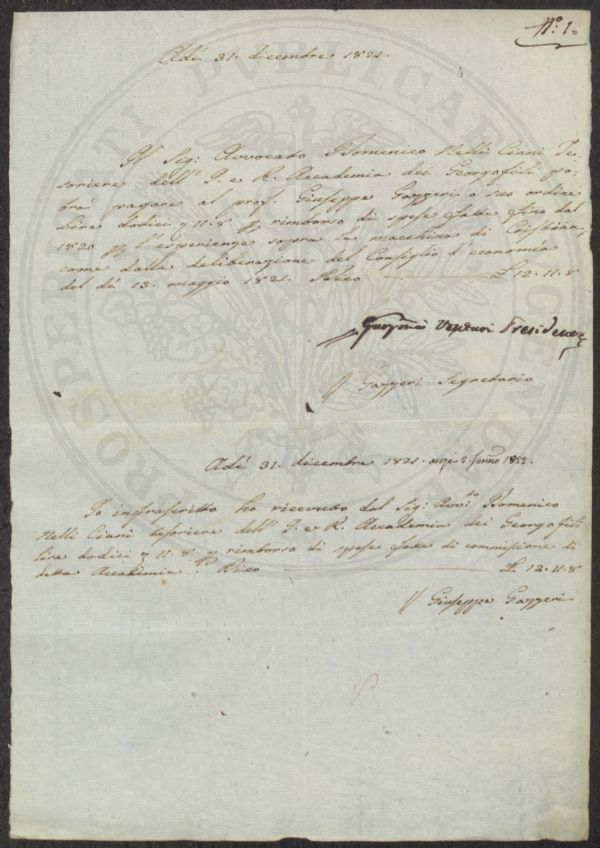 N.º 1.
Adì 31. dicembre 1821.
Il Sig: Avvocato Domenico Nelli Ciani Te-
soriere dell' I. e R. Accademia dei Georgofili po-
trà pagare al prof. Giuseppe Gazzeri o suo ordine
lire dodici 11.8 rimborso di spese fatte fino dal
1820 l'esperienze sopra la macchina di Cristian,
come dalla deliberazione del Consiglio d'economia
del dì 13. maggio 1821. Dico £ 12.11.8
Venturi Presidente
G. Gazzeri Segretario
Adì 31. dicembre 1821. 1822.
Io infrascritto ho ricevuto dal Sig: Avv:to Domenico
Nelli Ciani tesoriere dell' I. e R. Accademia dei Georgofili
lire dodici 11.8 rimborso di spese fatte di commissione di
detta Accademia Dico £ 12.11.8
Giuseppe Gazzeri
PROSPERITATI PUBLICAE AUGENDAE